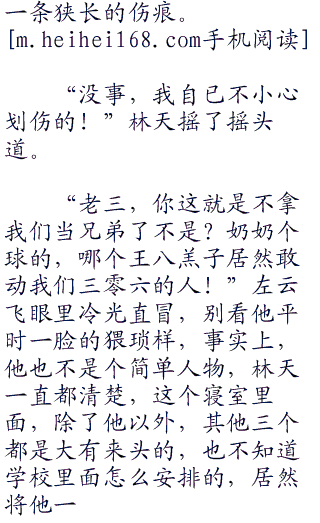 一条狭长的伤痕。
[m.heihei168.com手机阅读]
“没事，我自已不小心
划伤的！”林天摇了摇头
道。
“老三，你这就是不拿
我们当兄弟了不是？奶奶个
球的，哪个王八羔子居然敢
动我们三零六的人！”左云
飞眼里冷光直冒，别看他平
时一脸的猥琐样，事实上，
他也不是个简单人物，林天
一直都清楚，这个寝室里
面，除了他以外，其他三个
都是大有来头的，也不知道
学校里面怎么安排的，居然
将他一